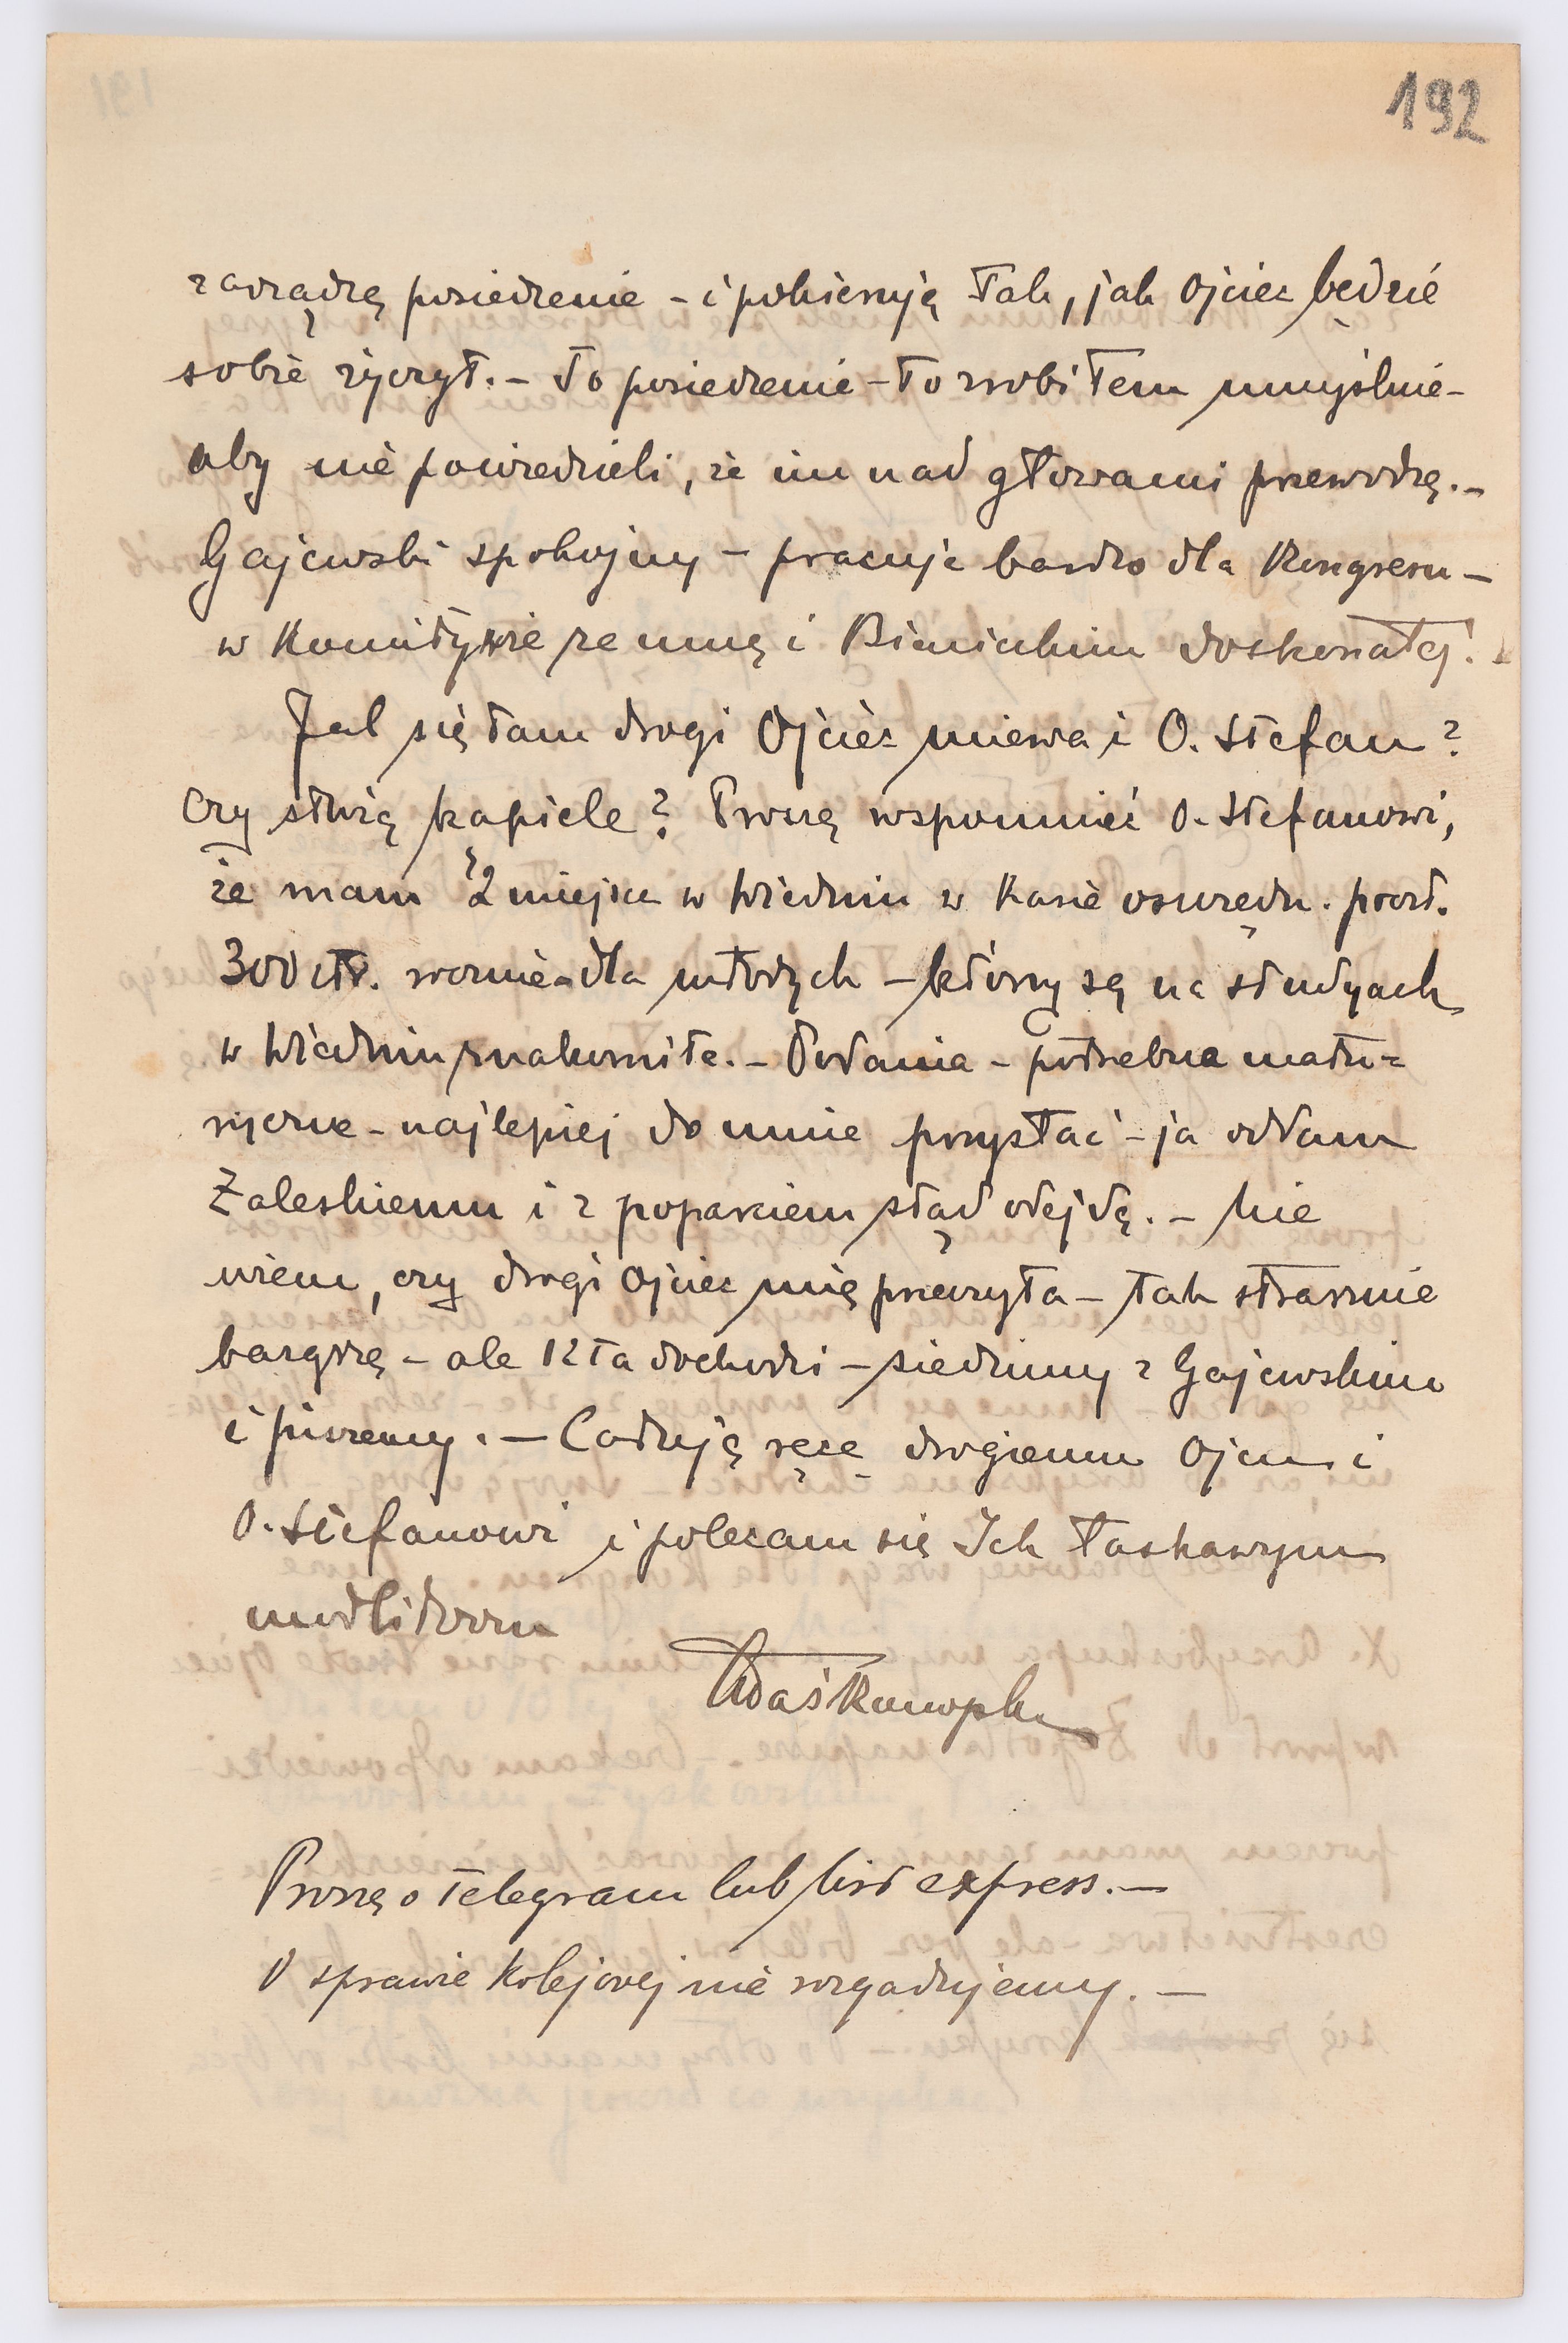 192
zarządzę posiedzenie – i pokieruję tak, jak Ojciec będzie
sobie życzył. – To posiedzenie – to zrobiłem umyślnie –
aby nie powiedzieli, że im nad głowami przewodzę. –
Gajewski spokojny – pracuje bardzo dla Kongresu –
w komitywie ze mną i doskonałej.
Jak się tam drogi Ojciec miewa i O. Stefan?
czy służą kąpiele? Proszę wspomnieć O. Stefanowi,
że mam 2 miejsca w Wiedniu w Kasie oszczędn. poczt.
300 złr. rocznie – dla młodych – którzy są na studyach
w Wiedniu znakomite. – Podania – potrzebne matu=
ryczne – najlepiej do mnie przysłać – ja oddam
Zaleskiemu i z poparciem stąd odejdą. – Nie
wiem, czy drogi Ojciec mię przeczyta – tak strasznie
bazgrzę – ale 12ta dochodzi – siedzimy z Gajewskim
i piszemy. – Całuję ręce drogiemu Ojcu i
O. Stefanowi i polecam się Ich łaskawym
modlitwom
Proszę o telegram lub list express. –
O sprawie kolejowej nie rozgadujemy. –